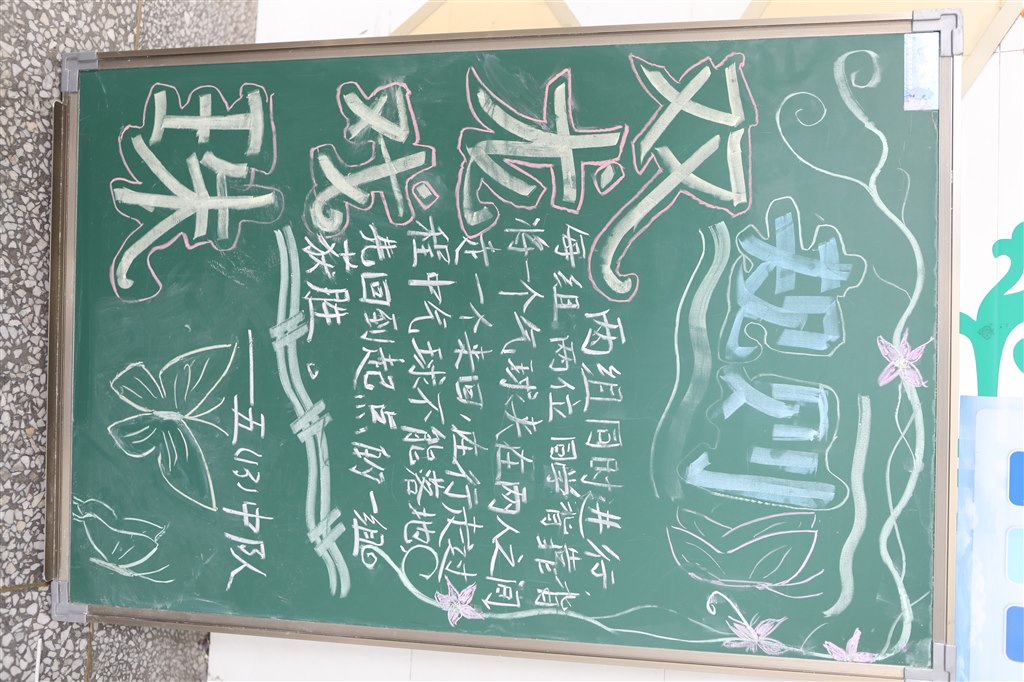 双龙戏球
规则
两组同时进行
每组两位同学背靠背
将一个气球夹在两人之间
走一个来回,在行走过
程中气球不能落地,
先回到起点的一组
获胜。
——五(3)中队